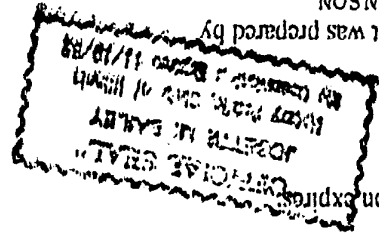 on expires
"OFFICIAL SEAL"
JOSETTE M. EARLEY
Notary Public, State of Illinois
My Commission Expires 11/19/
t was prepared by
NSON